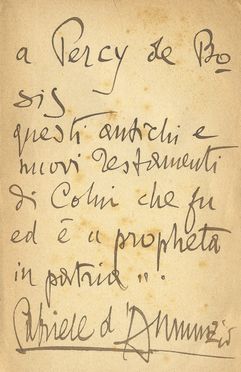 a Percy de Bo
sis
questi antichi e
nuovi Testamenti
di Colui che fu
ed è un propheta
in patria ...
Gabriele d'Annunzio